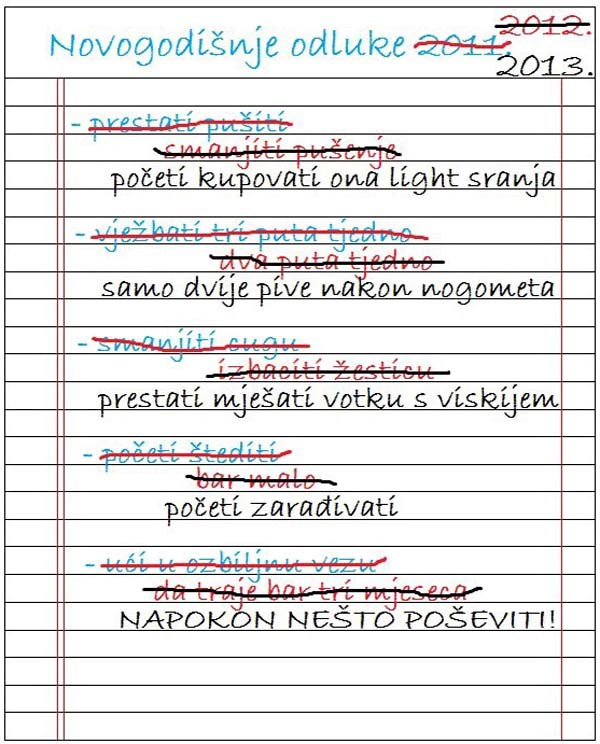 2012.
Novogodišnje odluke 2011.
2013.
- prestati pušiti
smanjiti pušenje
početi kupovati ona light sranja
- vježbati tri puta tjedno
dva puta tjedno
samo dvije pive nakon nogometa
- smanjiti cugu
izbaciti žesticu
prestati mješati votku s viskijem
- početi štediti
bar malo
početi zarađivati
- ući u ozbiljnu vezu
da traje bar tri mjeseca
NAPOKON NEŠTO POŠEVITI!